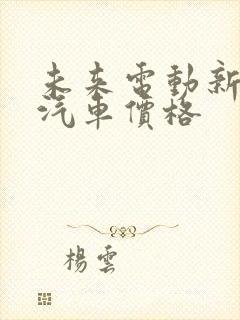 未來電動新
汽車價格
楊雲